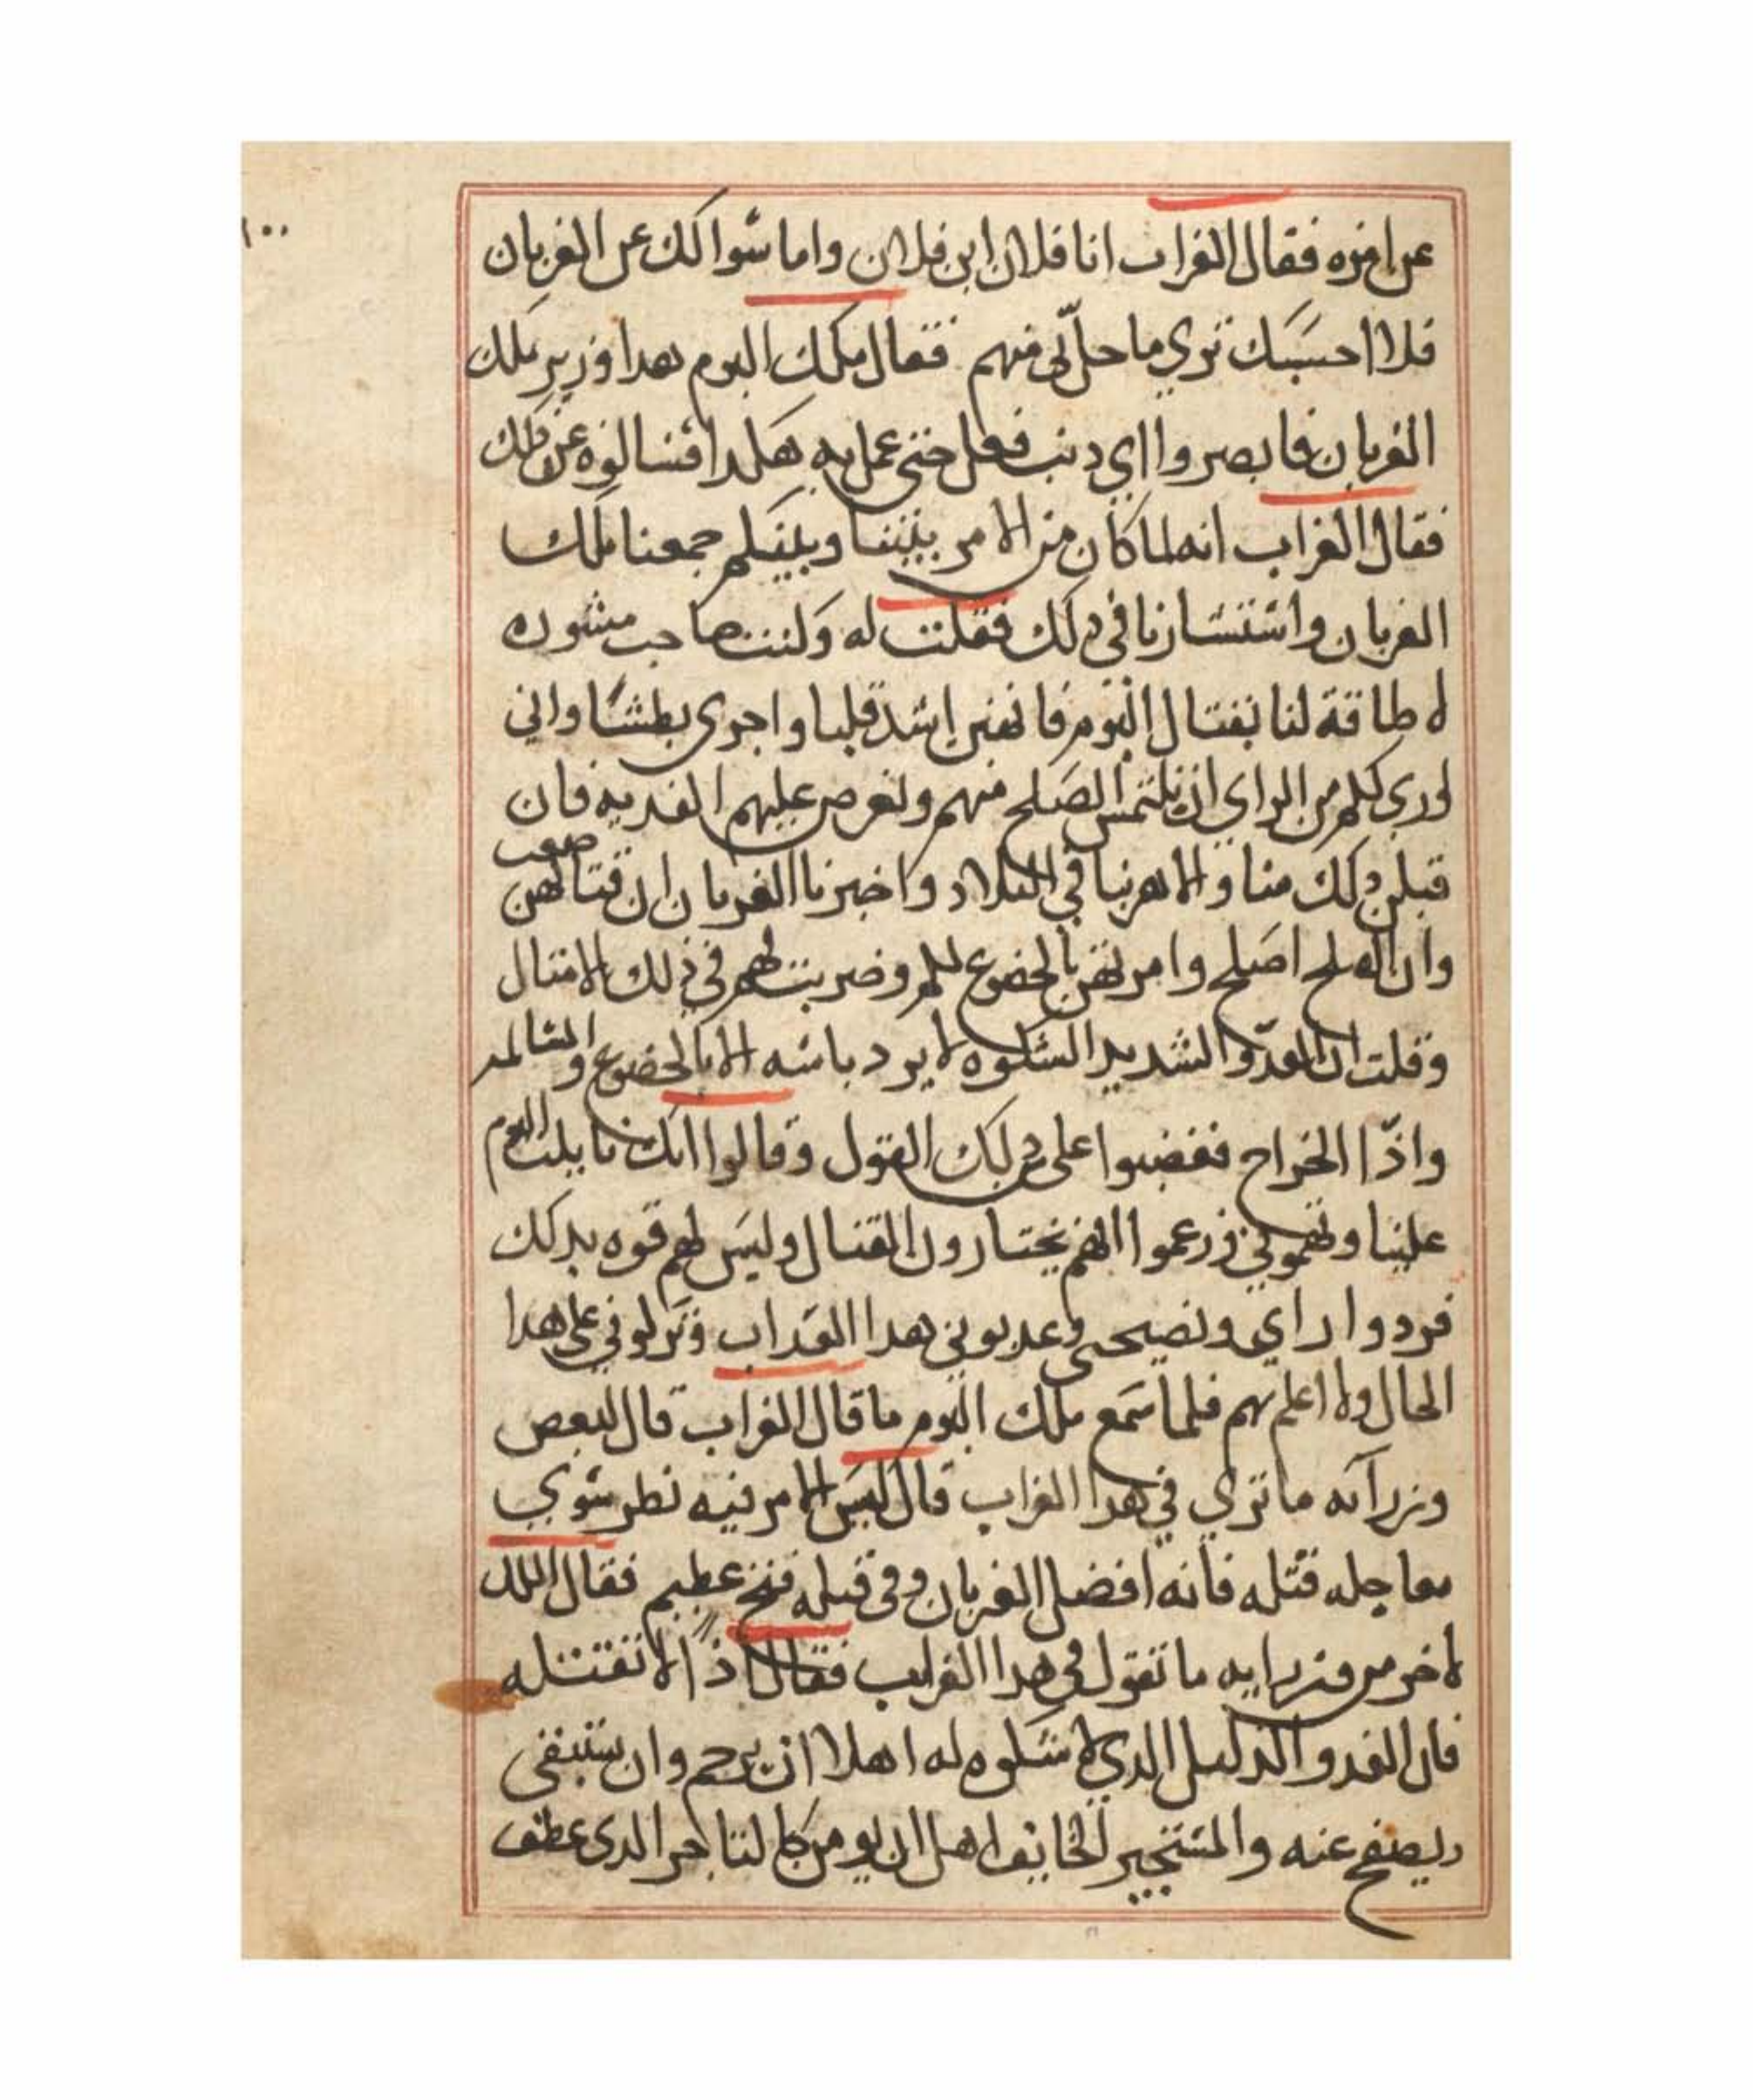 ١٠٠
عن امره فقال الغراب انا فلان ابن فلان واما سوالك عن الغربان
فلا احسبك تري ما حل بي منهم فقال ملك البوم هدا وزير ملك
الغربان فابصروا اي دنب فعل حتي عمل به هكدا فسالوه عن دلك
فقال الغراب انه لما كان من الامر بيننا وبينكم جمعنا ملك
الغربان واستشارنا في دلك فقلت له وكنت صاحب مشوره
لا طاقة لنا بقتال البوم فانهن اشد قلبا واجري بطشا واني
اوري لكم من الراي ان نلتمس الصلح منهم ونعرض عليهم الفديه فان
قبلن دلك منا والا هربنا في البلاد واخبرنا الغربان ان قتالهن صعب
وان الصلح اصلح وامرتهن بالخضوع لكم وضربت لهم في ذلك الامتال
وقلت ان العدو الشديد الشكوه لا يرد باسه الا بالخضوع والمسالمه
واذا الخراج فغضبوا علي دلك القول وقالوا انك مايلت البوم
علينا وتهموني وزعموا انهم يختارون القتال وليس لهم قوه بدلك
فردوا راي ونصيحتي وعدبوني بهدا العداب وتركوني علي هدا
الحال ولا اعلم بهم فلما سمع ملك البوم ما قال الغراب قال لبعص
وزرآئه ما تري في هدا الغراب قال ليس الامر فيه نطر سوي
معاجله قتله فانه افضل الغربان وفي قتله فتح عطيم فقال الملك
لاخر من وزرايه ما تقول في هدا الغراب فقال اذا لا نقتله
فان العدو الذليل الدي لا شكوه له اهلا ان يرحم وان يستبقى
ويصفح عنه والمستجير الخايف اهل ان يومن كالتاجر الدي عطف